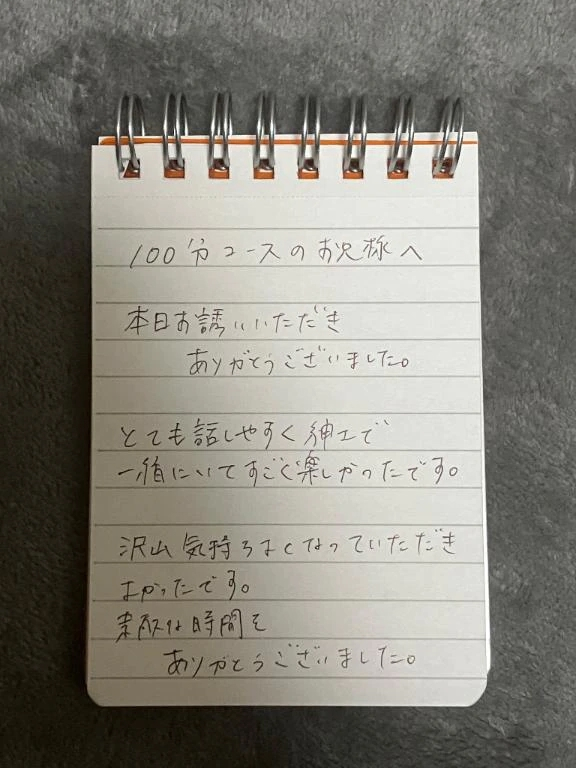 100分コースのお兄様へ
本日お誘いいただき
ありがとうございました。
とても話しやすく紳士で
一緒にいてすごく楽しかったです。
沢山気持ちよくなっていただき
よかったです。
素敵な時間を
ありがとうございました。